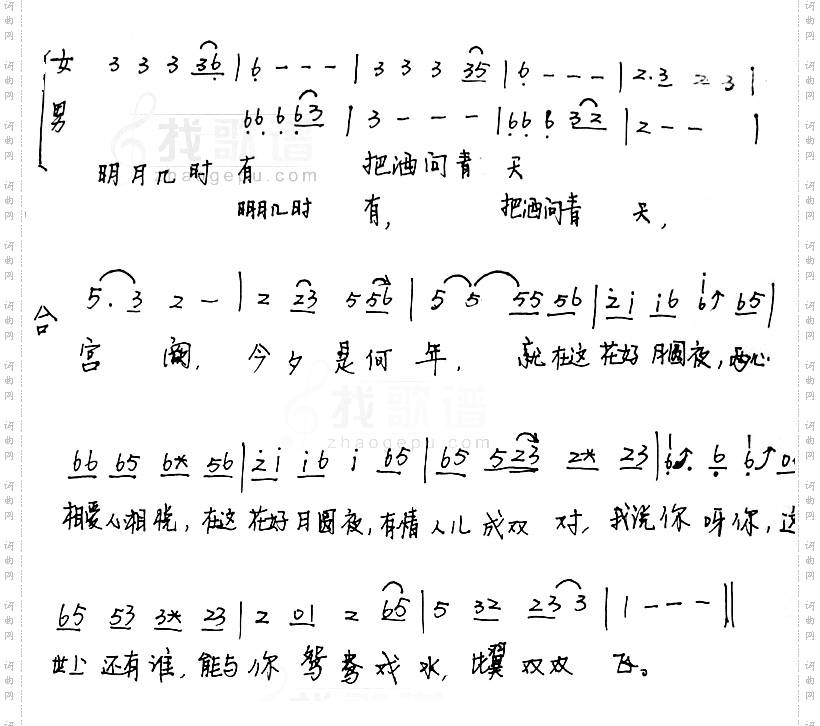 女 3 3 3 36 | 6 - - - | 3 3 3 35 | 6 - - - | 2·3 2 3 |
男 66 6 63 | 3 - - - | 66 6 32 | 2 - - |
明月几时有 把酒问青天
明月几时 有, 把酒问青 天,
合 5. 3 2 - | 2 23 5 56 | 5 5 55 56 | 2i i6 6↑ 65 |
宫 阙, 今夕是何年, 就在这花好月圆夜,两心
66 65 6* 56 | 2i i6 i 65 | 65 523 2* 23 | 6↑. 6 6↑ 0
相爱心相悦,在这花好月圆夜,有情人儿成双对,我说你呀你,这
65 53 3* 23 | 2 01 2 65 | 5 32 23 3 | 1 - - - ||
世上还有谁,能与你鸳鸯戏水,比翼双双飞。
找歌谱
zhaogepu.com
找歌谱
zhaogepu.com
词曲网